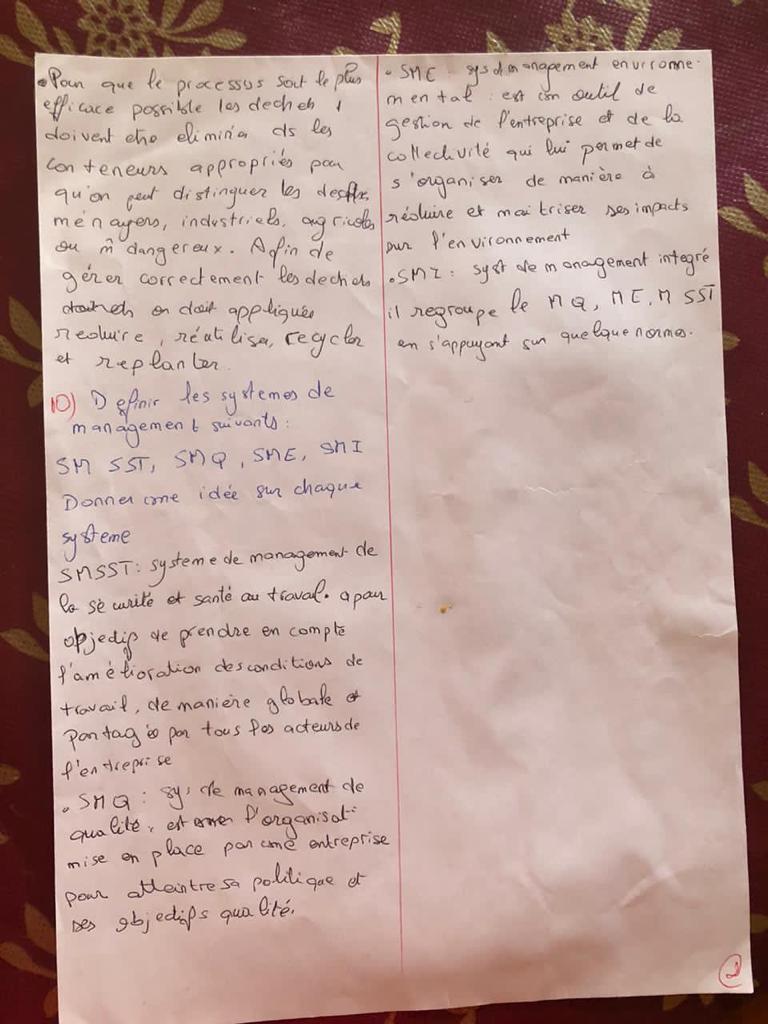 • Pour que le processus soit le plus
efficace possible les dechets,
doivent etre eliminés ds les
conteneurs appropriés pour
qu'on peut distinguer les
ménagers, industriels, agricoles
ou m̂ dangereux. Afin de
gérer correctement les dechets
on doit appliquer
reduire, réutiliser, recycler
et replanter.
10) Definir les systemes de
management suivants:
SM SST, SMQ, SME, SMI
Donner une idée sur chaque
systeme
SMSST: systeme de management de
la sécurité et santé au travail. a pour
objectif de prendre en compte
l'amélioration des conditions de
travail, de manière globale et
partagée par tous les acteurs de
l'entreprise
• SMQ: sys de management de
qualité, est l'organisat°
mise en place par une entreprise
pour atteintre sa politique et
ses objectifs qualité.
• SME: sys d management environne-
mental: est un outil de
gestion de l'entreprise et de la
collectivité qui lui permet de
s'organiser de manière à
réduire et maitriser ses impacts
sur l'environnement
• SMI: syst de management integré
il regroupe le MQ, ME, M SST
en s'appuyant sur quelque normes.
2